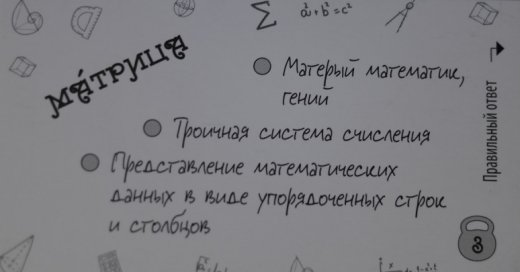 МА́ТРИЦА
Матерый математик,
гений
Троичная система счисления
Представление математических
данных в виде упорядоченных строк
и столбцов
Правильный ответ
3
a²+b²=c²
Σ